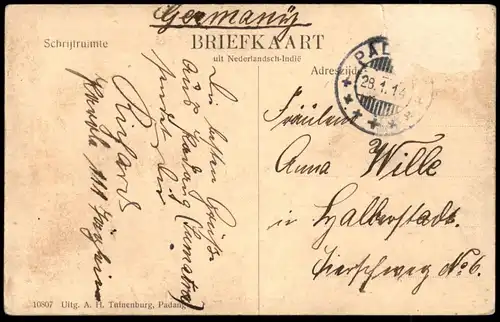 Germany
Schrijfruimte
BRIEFKAART
uit Nederlandsch-Indië
Adreszijde
PAD
28.1.14
Die besten Grüße
aus Padang (Sumatra)
sendet Dir
Richard
Fräulein
Anna Wille
in Halberstadt
No 6.
10807 Uitg. A. H. Tuinenburg, Padang